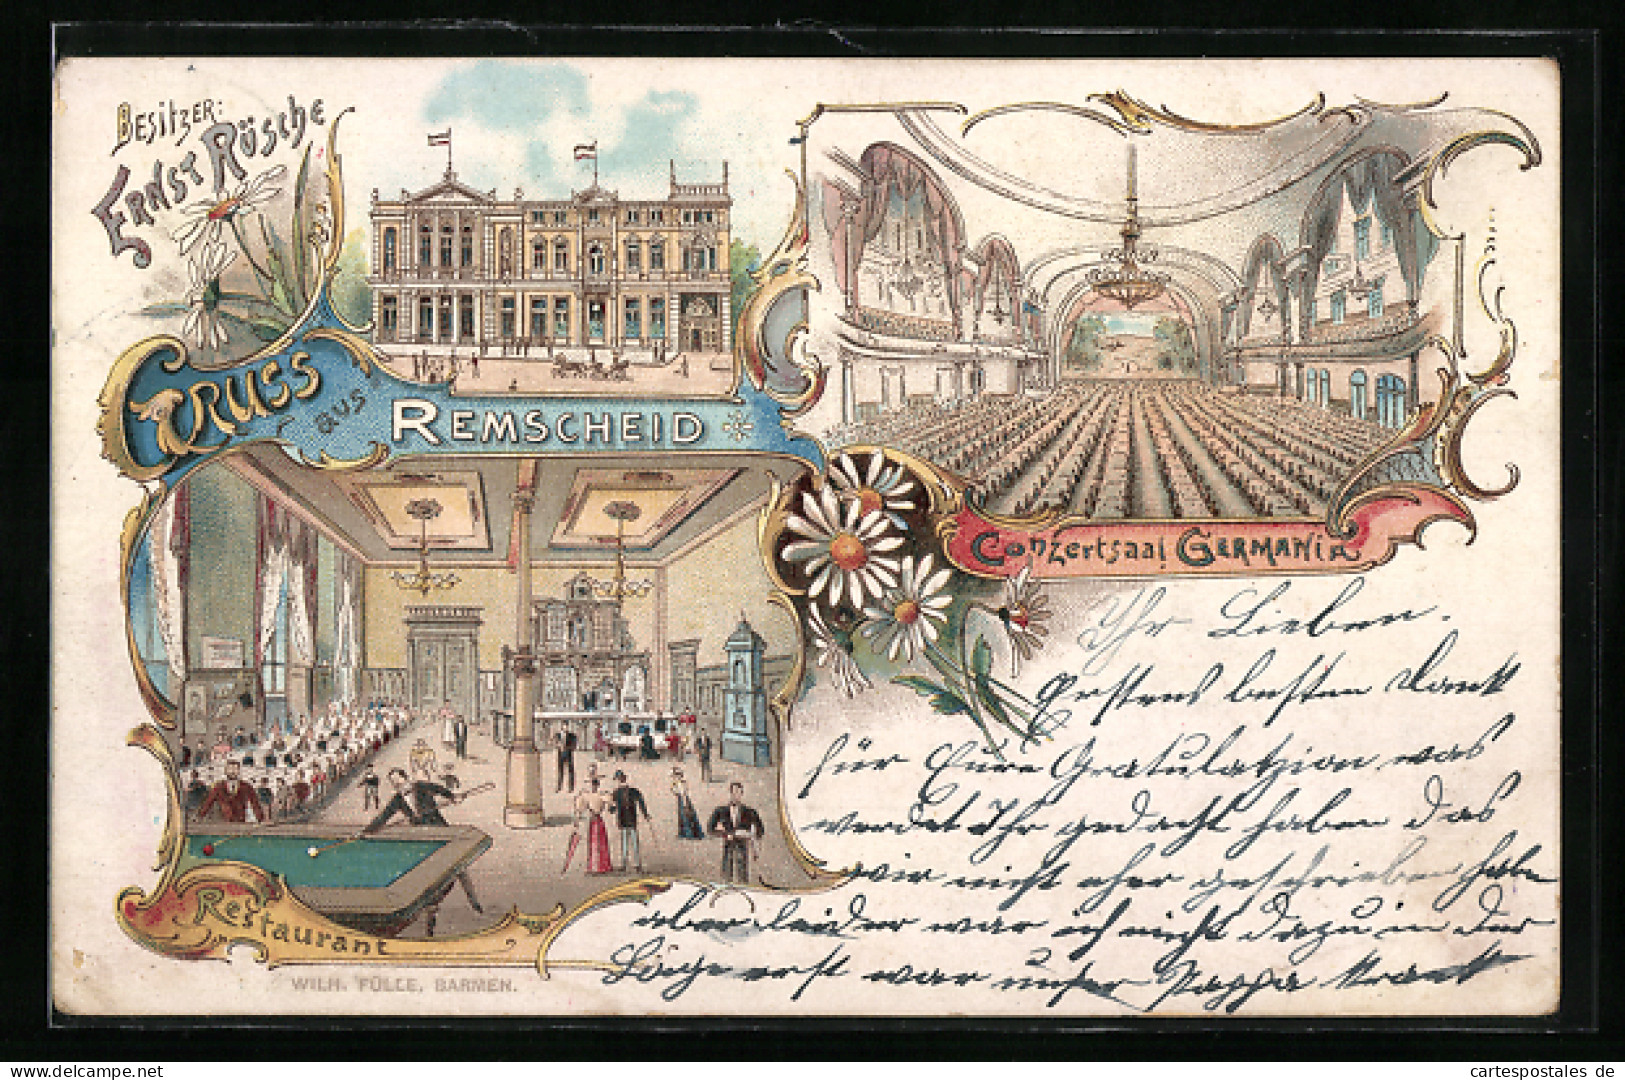 BESITZER:
ERNST RÖSCHE
GRUSS
aus
REMSCHEID
Conzertsaal GERMANIA
Restaurant
WILH. FÜLLE, BARMEN.
Ihr Lieben.
Erstens besten Dank
für Eure Gratulatzion was
werdet Ihr gedacht haben das
wir nicht eher geschrieben habe
aber leider war ich nicht dazu in der
Lage erst war unser Pappa krank
cartespostales de